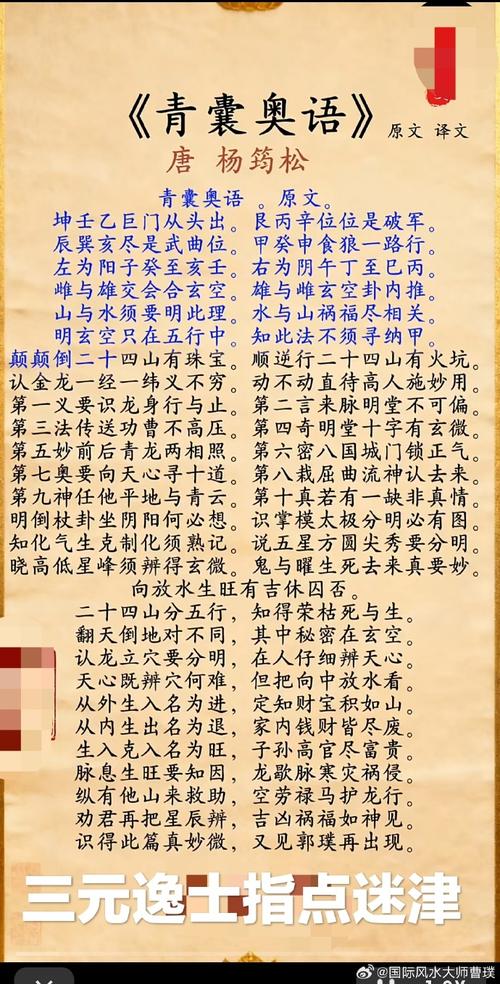 《青囊奥语》 原文 译文
唐 杨筠松
青囊奥语 。原文。
坤壬乙巨门从头出。艮丙辛位位是破军。
辰巽亥尽是武曲位。甲癸申食狼一路行。
左为阳子癸至亥壬。右为阴午丁至巳丙。
雌与雄交会合玄空。雄与雌玄空卦内推。
山与水须要明此理。水与山祸福尽相关。
明玄空只在五行中。知此法不须寻纳甲。
颠颠倒二十四山有珠宝。顺逆行二十四山有火坑。
认金龙一经一纬义不穷。动不动直待高人施妙用。
第一义要识龙身行与止。第二言来脉明堂不可偏。
第三法传送功曹不高压。第四奇明堂十字有玄微。
第五妙前后青龙两相照。第六密八国城门锁正气。
第七奥要向天心寻十道。第八裁屈曲流神认去来。
第九神任他平地与青云。第十真若有一缺非真情。
明倒杖卦坐阴阳何必想。识掌模太极分明必有图。
知化气生克制化须熟记。说五星方圆尖秀要分明。
晓高低星峰须辨得玄微。鬼与曜生死去来真要妙。
向放水生旺有吉休囚否。
二十四山分五行，知得荣枯死与生。
翻天倒地对不同，其中秘密在玄空。
认龙立穴要分明，在人仔细辨天心。
天心既辨穴何难，但把向中放水看。
从外生入名为进，定知财宝积如山。
从内生出名为退，家内钱财皆尽废。
生入克入名为旺，子孙高官尽富贵。
脉息生旺要知因，龙歇脉寒灾祸侵。
纵有他山来救助，空劳禄马护龙行。
劝君再把星辰辨，吉凶祸福如神见。
识得此篇真妙微，又见郭璞再出现。
三元逸士指点迷津
@国际风水大师曹璞